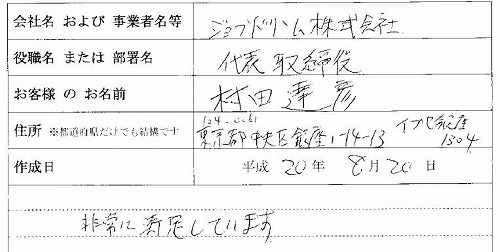 会社名 および 事業者名等 ジョブドリーム株式会社
役職名 または 部署名 代表取締役
お客様 の お名前 村田達彦
104-0061
住所 ※都道府県だけでも結構です 東京都中央区銀座1-14-13
1304
作成日 平成 20年 8月 20日
非常に満足しています